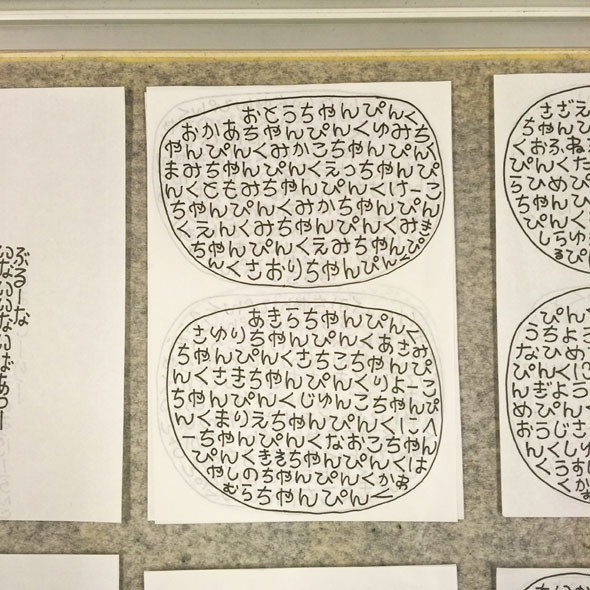 ぶるーな
いないいないばあっー
おとうちゃんぴんく
おかあちゃんぴんくゆみち
ゃんぴんくみかこちゃんぴん
まみちゃんぴんくえっちゃんぴ
んくともみちゃんぴんくけーこ
ちゃんぴんくみかちゃんぴん
くえんくみちゃんぴんくみき
ちゃんぴんくえみちゃんぴ
んくさおりちゃんぴんく
あきらちゃんぴんく
さゆりちゃんぴんくあさみ
ちゃんぴんくさちこちゃんぴ
んくさきちゃんぴんくりよーこ
ちゃんぴんくじゅんこちゃんぴ
んくまりえちゃんぴんくにく
ーちゃんぴんくなおこちゃん
ぴんくききちゃんぴんくは
やしのちゃんぴんくかゎ
むらちゃんぴんく
さざえ
ちゃんぴん
くおふね
ぴんくた
らひめぴ
ちゃんぴん
ぴんく
しちゆ
るぴ
ぴん
うちよ
なひめ
ぴんくに
んぎよう
めぴん
おうじさ
んくしゆ
くうす
くか